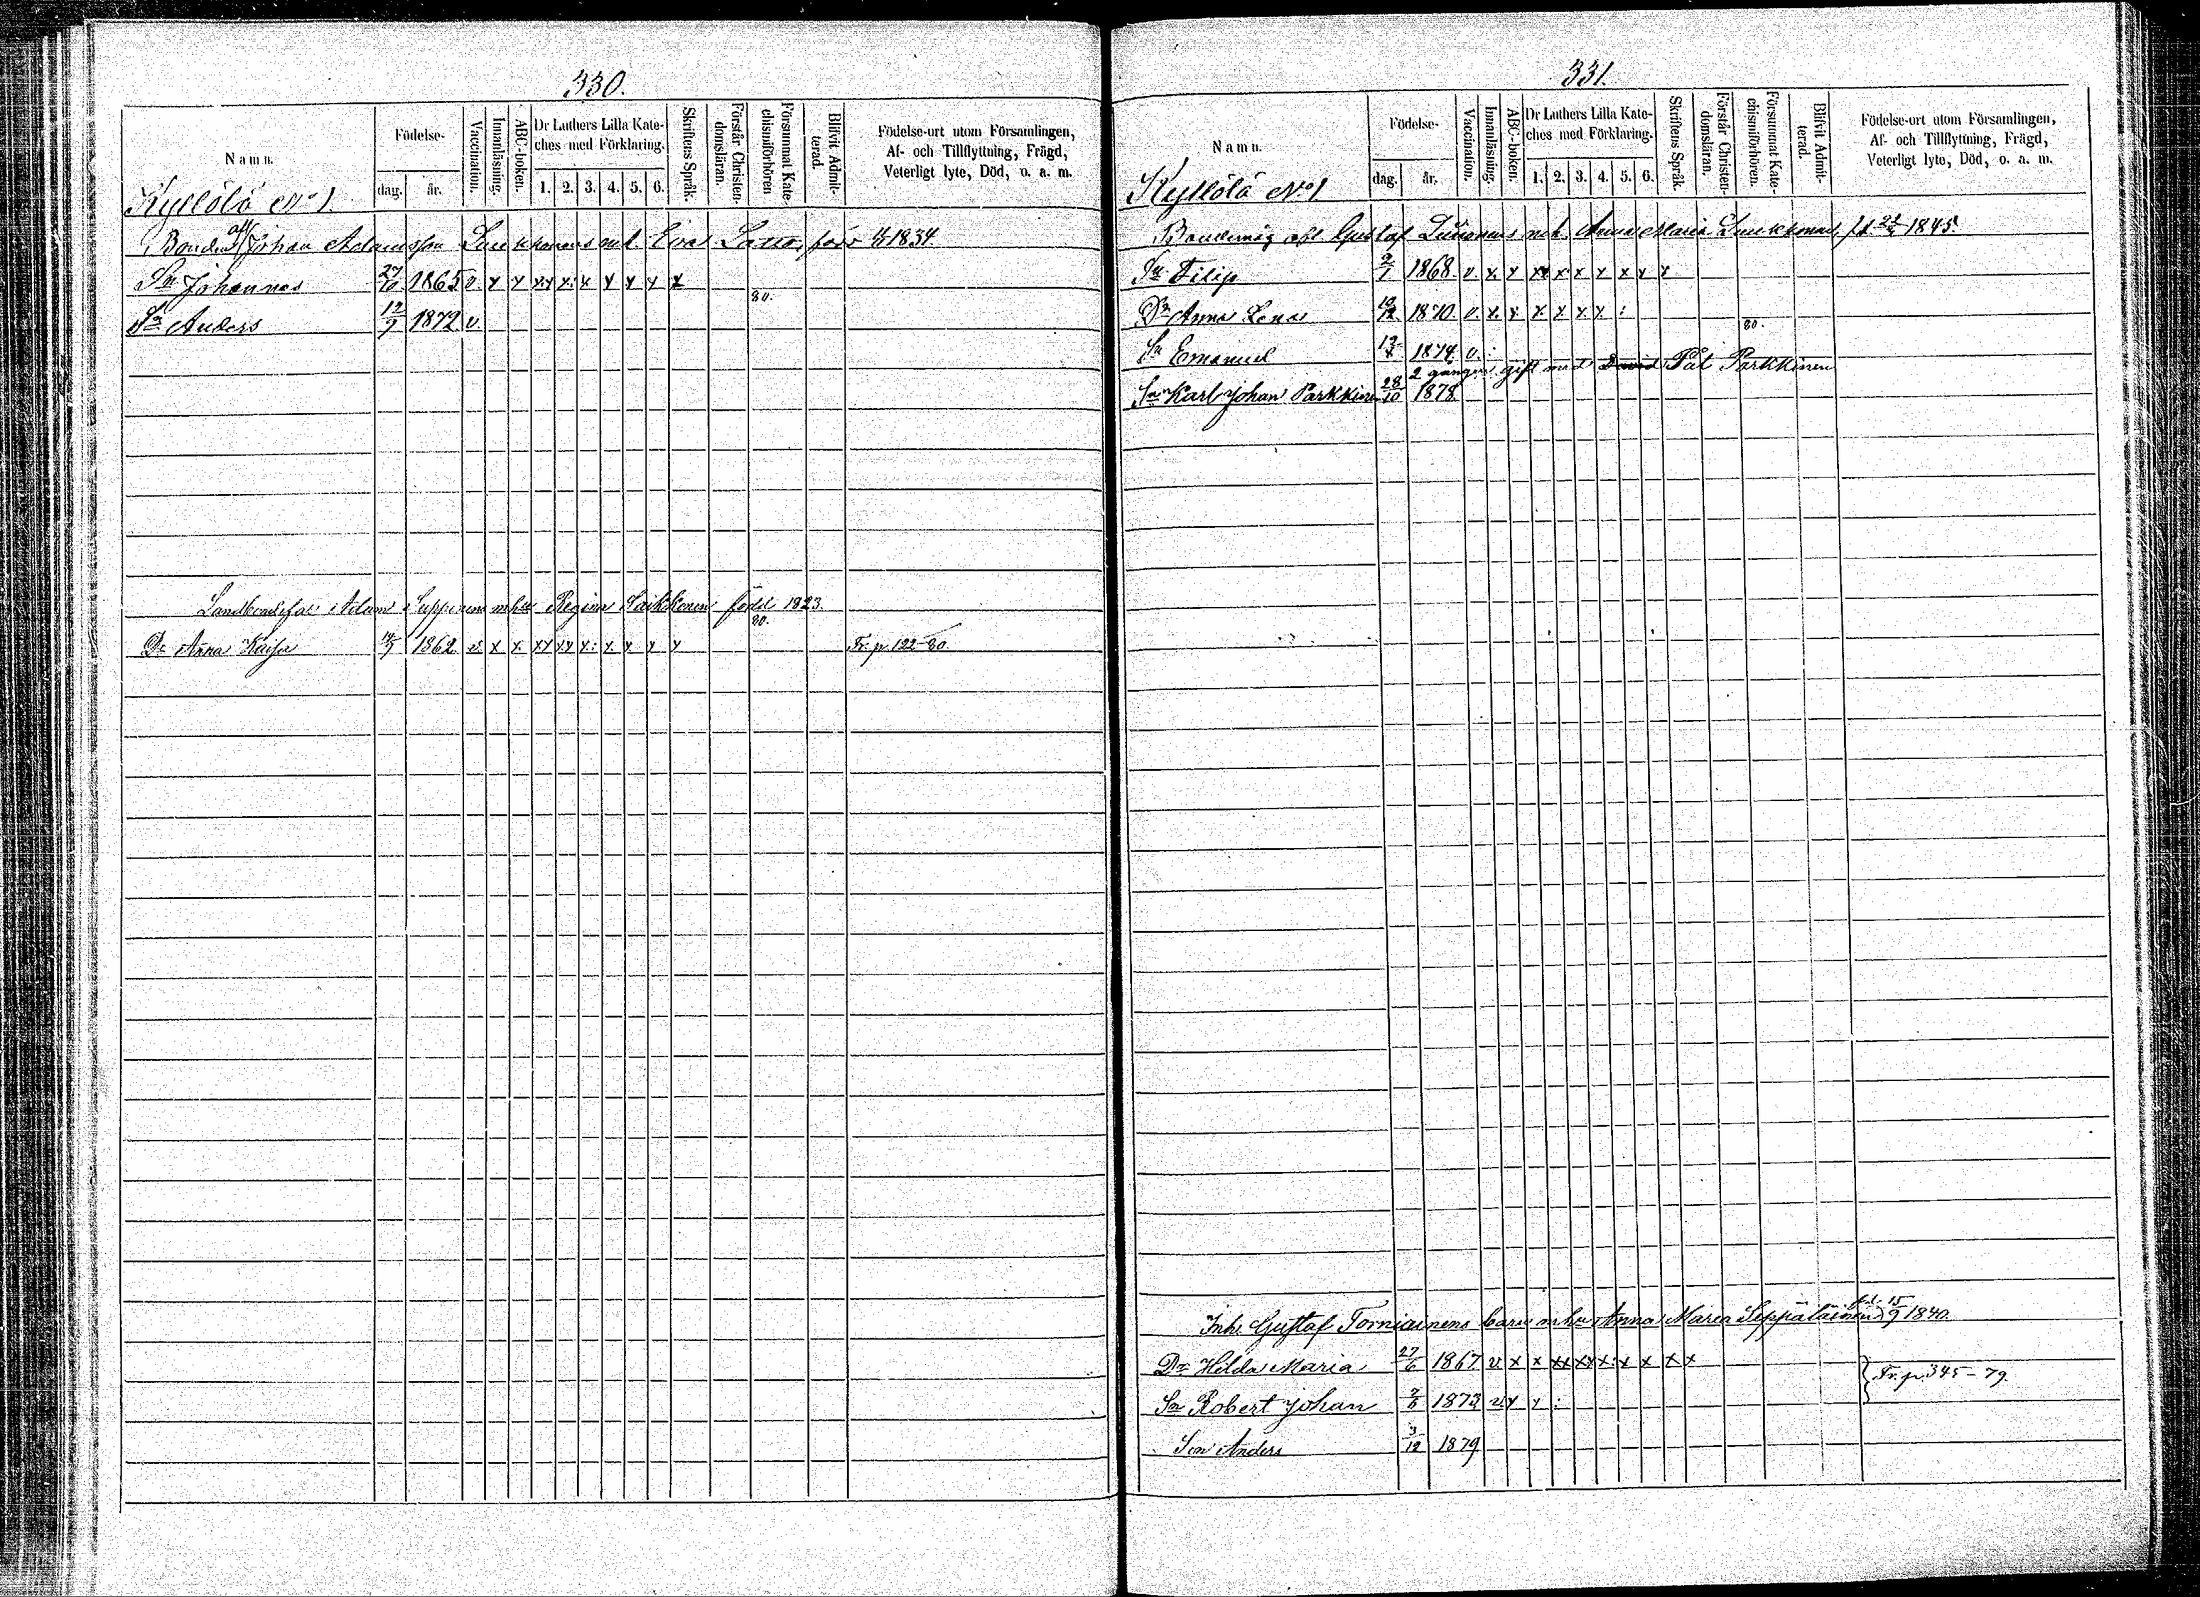 330.
Namn.
Födelse-
dag. år.
Vaccination.
Innanläsning.
ABC-boken.
Dr Luthers Lilla Kate-
ches med Förklaring.
1. 2. 3. 4. 5. 6.
Skriftens Språk.
Förstår Christen-
domsläran.
Försummat Kate-
chismiförhören
Blifvit Admit-
terad.
Födelse-ort utom Församlingen,
Af- och Tillflyttning, Frägd,
Veterligt lyte, Död, o. a. m.
Kyllölä No 1.
Bonden afl Johan Adamsson Luukkonens m. h. Eva 1834
Sn Johannes 27/10 1865 v x x xx x: x x x x x
80.
Sn Anders 12/9 1872 v.
Adam Supponens Regina Saikkonen född 1823
80.
Dr Anna Kaisa 1862 v. x x xx xx x: x x x x Fr. p. 122-80
331.
Namn.
Födelse-
dag. år.
Vaccination.
Innanläsning.
ABC-boken.
Dr Luthers Lilla Kate-
ches med Förklaring.
1. 2. 3. 4. 5. 6.
Skriftens Språk.
Förstår Christen-
domsläran.
Försummat Kate-
chismiförhören.
Blifvit Admit-
terad.
Födelse-ort utom Församlingen,
Af- och Tillflyttning, Frägd,
Veterligt lyte, Död, o. a. m.
Kyllölä No 1.
afl Gustaf m. h. Anna Maria Luukkonen, fd 1845.
Sn Filip 2/1 1868 v. x x xx x x x x x x
Dr Anna Lena 1870 v. x. x x x x x :
80.
Sn Emanuel 1874 v. :
2 gången gift med David Pål Parkkinen
Sn Karl Johan Parkkinen 28/10 1878
Inh. Gustaf Torniainens barn m. hu Anna Maria Seppäläinen fd. 15/9 1840.
Dr Hilda Maria 27/6 1867 v x x xx xx x: x x x x
Fr. p. 345-79
Sn Robert Johan 1873 v x x :
Son Anders 3/12 1879